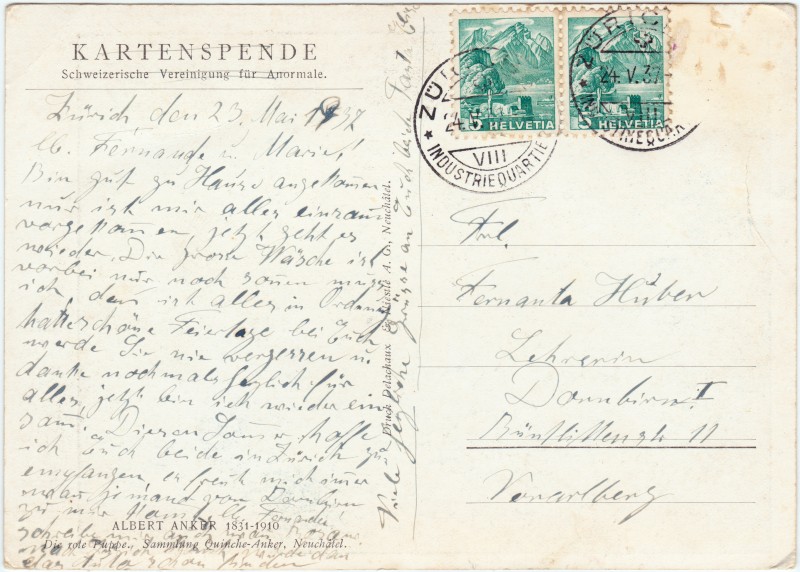 KARTENSPENDE
Schweizerische Vereinigung für Anormale.
Zürich den 23. Mai 1937
lb. Fernande u. Marie!
Bin gut zu Hause angekommen
nur ist mir alles einsam
vorgekommen, jetzt geht es
wieder. Die grosse Wäsche ist
vorbei nur noch sonnen muss
ich, dan ist alles in Ordnung
hatte schöne Feiertage bei Euch
werde Sie nie vergessen u.
danke nochmals für
alles, jetzt bin ich wieder ein
sam. Diesen Sommer hoffe
ich Euch beide in Zürich zu
empfangen, es freut mich imer
wen jemand von Dornbirn
zu mir kommt. lb. Fernande
schreibe mir auch
ALBERT ANKER 1831-1910
Die rote Puppe. Sammlung Quinche-Anker, Neuchâtel.
Viele Grüsse an Euch beide Tante
Druck Delachaux & Niestlé A. G., Neuchâtel.
ZÜRICH
24.V.37
VIII
INDUSTRIEQUARTIER
5 HELVETIA
5 HELVETIA
ZÜRICH
24.V.37
VIII
Frl.
Fernanta Huber
Lehrerin
Dornbirn I
11
Vorarlberg